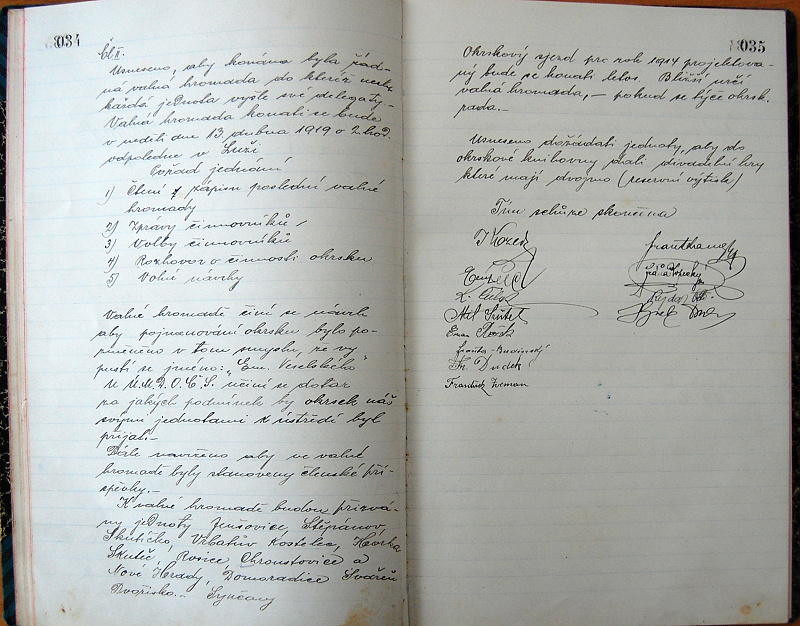 034
Čl. II.
Usneseno, aby konána byla řád-
ná valná hromada do kteréž nechť
každá jednota vyšle své delegáty.-
Valná hromada konati se bude
v neděli dne 13 dubna 1919 o 2 hod.
odpoledne v Luži
Pořad jednání
1) Čtení zápisu poslední valné
hromady
2) Zprávy činovníků
3) Volby činovníků
4) Rozhovor o činnosti okrsku
5) Volné návrhy
Valné hromadě činí se návrh
aby pojmenování okrsku bylo po-
změněno v tom smyslu, že vy
pustí se jméno: „Em. Veselského"
U Ú.M.D.O.Č.S. učiní se dotaz
za jakých podmínek by okrsek náš
svými jednotami k ústředí byl
přijat.-
Dále navrženo aby ve valné
hromadě byly stanoveny členské pří-
spěvky.-
K valné hromadě budou přizvá-
ny jednoty Štěpánov,
Skutíčko, Vrbatův Kostelec,
Skuteč, Rosice Chroustovice a
Nové Hrady, Domoradice
Dvořisko.- Synčany
035
Okrskový sjezd pro rok 1914 projektova-
ný bude se konati letos. Bližší určí
valná hromada, – pokud se týče okrsk.
rada.-
Usneseno dožádati jednoty, aby do
okrskové knihovny dali divadelní hry
které mají dvojmo (reservní výtisk)
Tím schůze skončena
Dudek
František Zeman